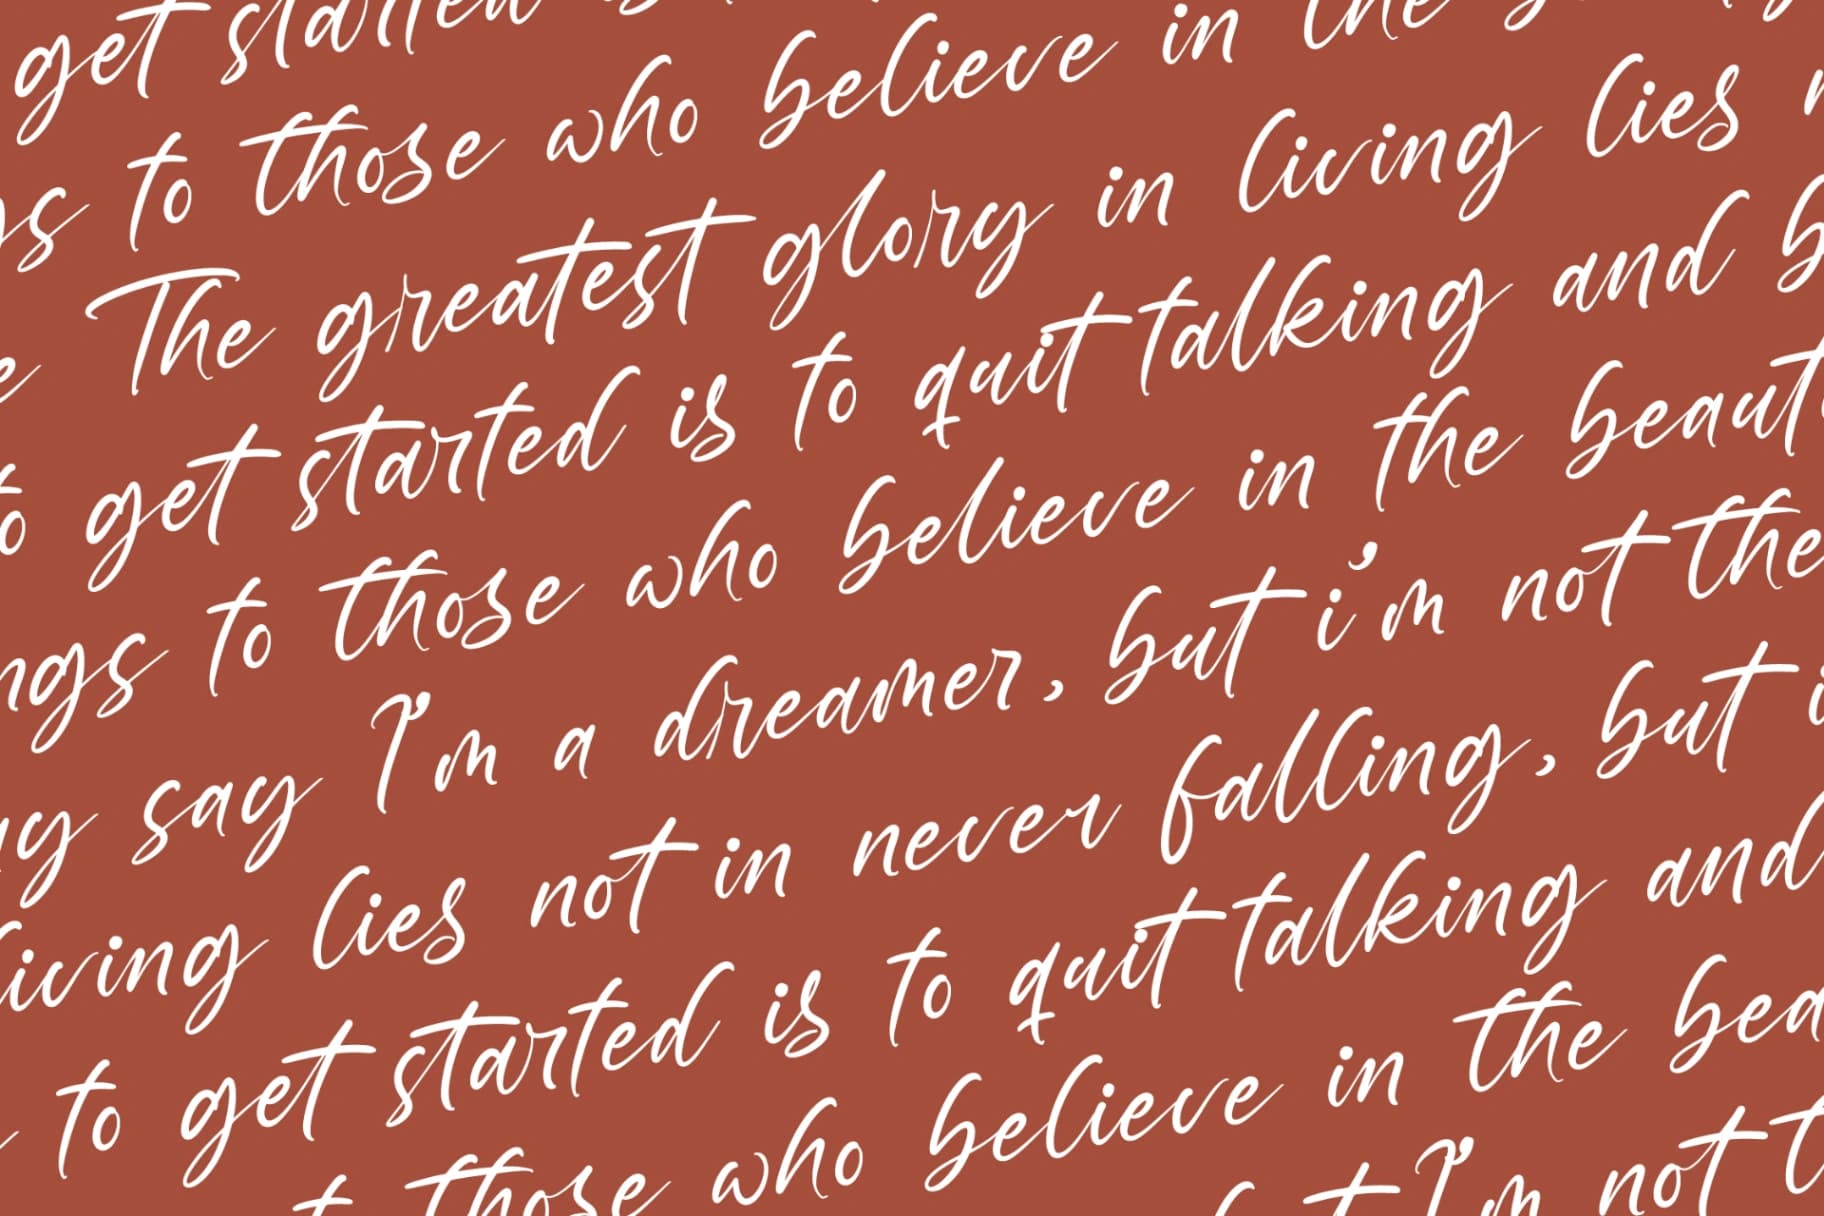 get started
to those who believe in the
The greatest glory in living lies
to get started is to quit talking and
ngs to those who believe in the beauti
say I'm a dreamer, but i'm not the
living lies not in never falling, but i
to get started is to quit talking and
to those who believe in the bea
I'm not t